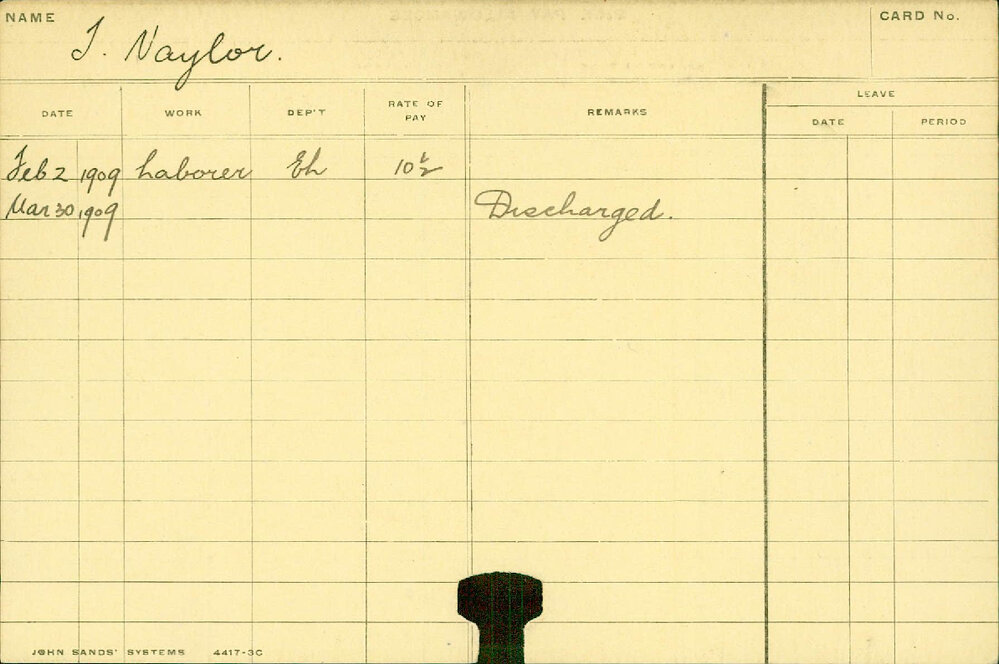 NAME
T. Naylor.
CARD No.
DATE WORK DEP'T RATE OF PAY REMARKS LEAVE
DATE PERIOD
Feb 2 1909 Laborer Eh 10½
Mar 30 1909 Discharged.
JOHN SANDS' SYSTEMS 4417-3C